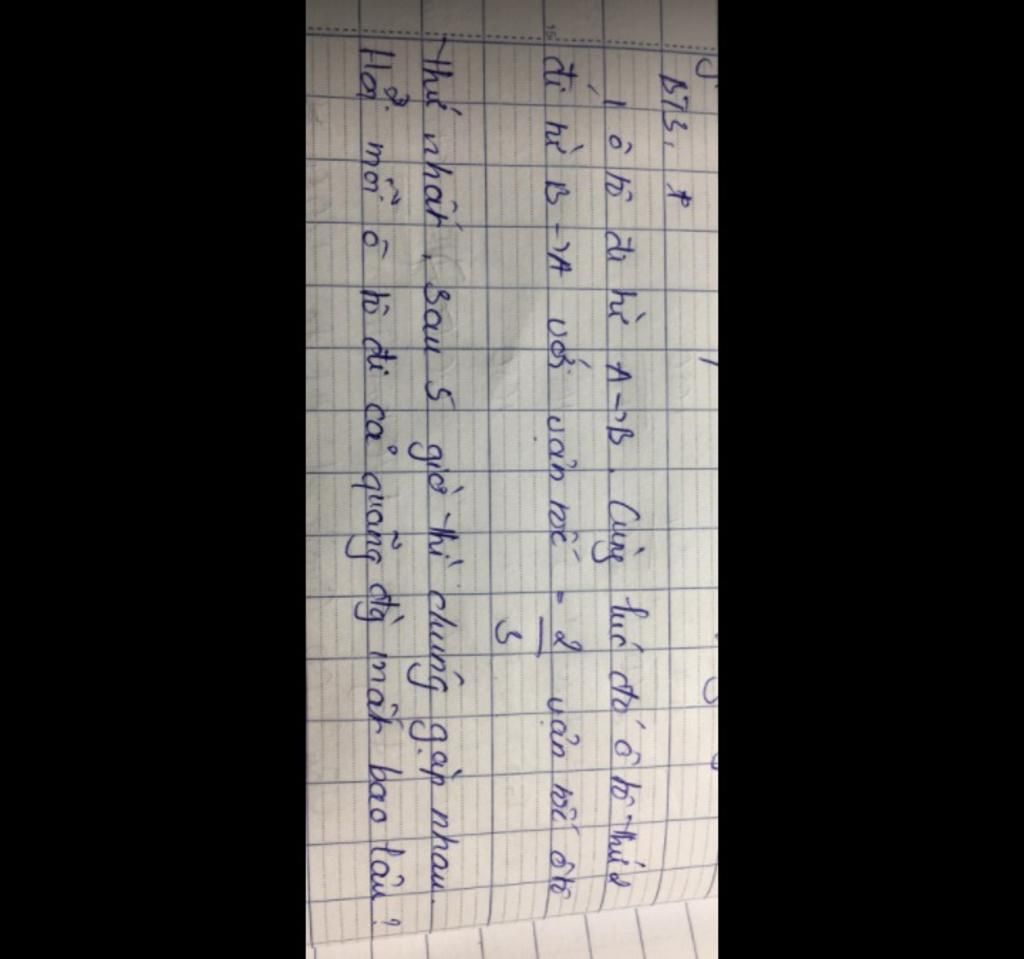 BT3, *
1 ô tô đi từ A→B. Cùng lúc đó ô tô thứ 2
đi từ B→A với vận tốc = 2/3 vận tốc ô tô
thứ nhất, sau 5 giờ thì chúng gặp nhau.
Hỏi mỗi ô tô đi cả quãng đg mất bao lâu?